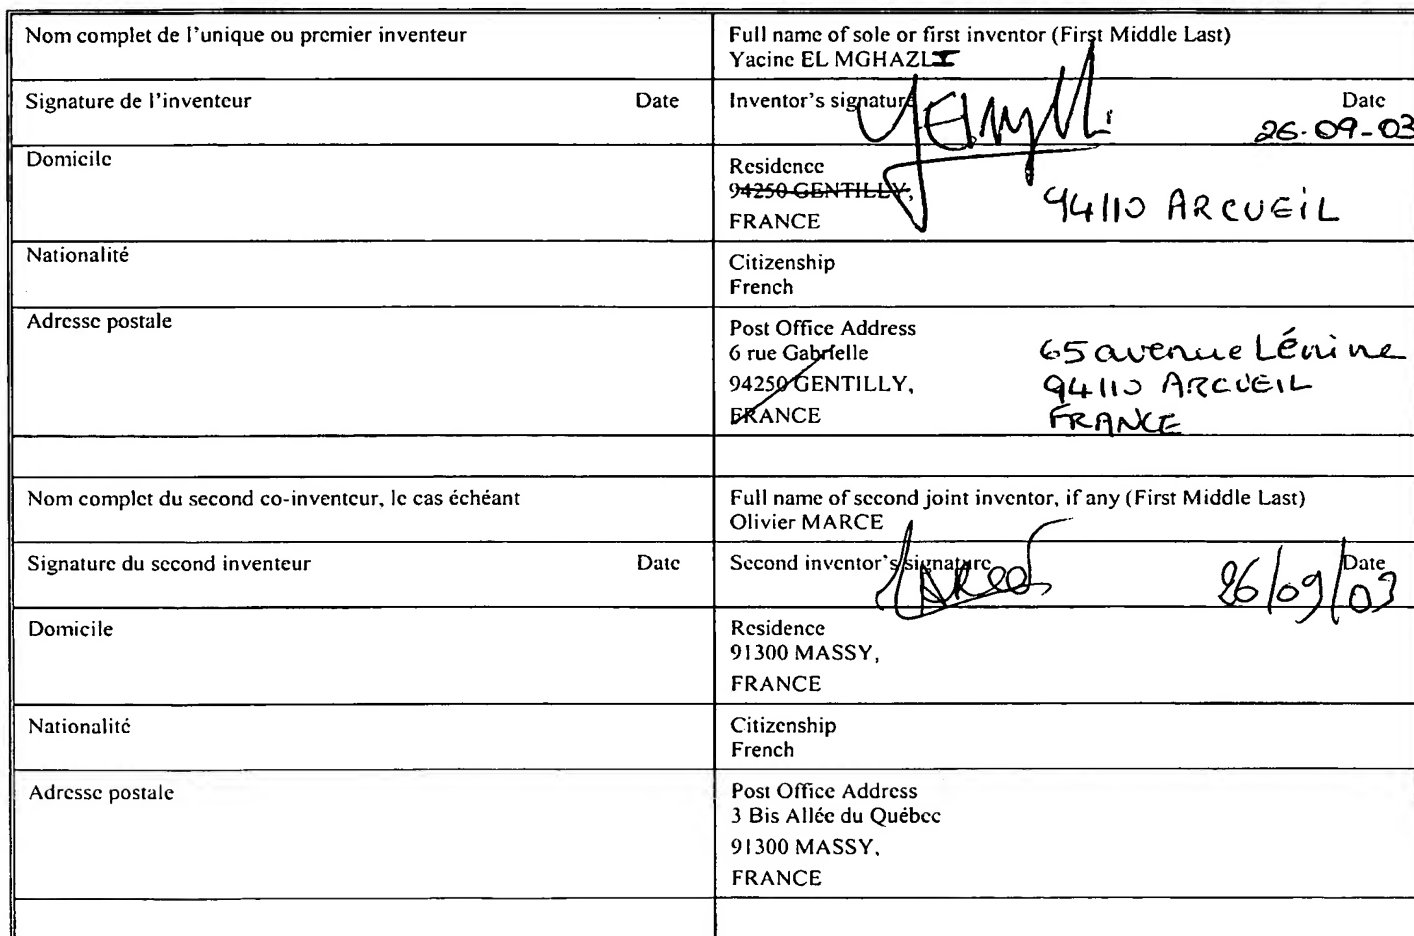 Nom complet de l'unique ou premier inventeur
Full name of sole or first inventor (First Middle Last)
Yacine EL MGHAZLI
Signature de l'inventeur Date
Inventor's signature Date
26-09-03
Domicile
Residence
94250 GENTILLY,
94110 ARCUEIL
FRANCE
Nationalité
Citizenship
French
Adresse postale
Post Office Address
6 rue Gabrielle
65 avenue Lénine
94250 GENTILLY,
94110 ARCUEIL
FRANCE
FRANCE
Nom complet du second co-inventeur, le cas échéant
Full name of second joint inventor, if any (First Middle Last)
Olivier MARCE
Signature du second inventeur Date
Second inventor's signature Date
26/09/03
Domicile
Residence
91300 MASSY,
FRANCE
Nationalité
Citizenship
French
Adresse postale
Post Office Address
3 Bis Allée du Québec
91300 MASSY,
FRANCE